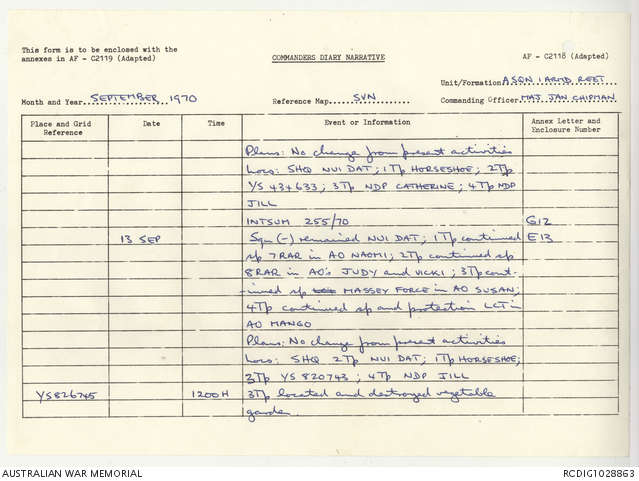 This form is to be enclosed with the
annexes in AF - C2119 (Adapted)
COMMANDERS DIARY NARRATIVE
AF - C2118 (Adapted)
Unit/Formation A SQN 1 ARMD REGT
Month and Year SEPTEMBER 1970
Reference Map SVN
Commanding Officer MAJ JAN CHIPMAN
Place and Grid Reference
Date
Time
Event or Information
Annex Letter and Enclosure Number
Plans: No change from present activities
Locs: SHQ NUI DAT; 1Tp HORSESHOE; 2Tp
YS 434633; 3Tp NDP CATHERINE; 4Tp NDP
JILL
INTSUM 255/70 G12
13 SEP Sqn (-) remained NUI DAT; 1Tp continued E13
sp 7RAR in AO NAOMI; 2Tp continued sp
8RAR in AO's JUDY and VICKI; 3Tp cont-
inued sp MASSEY FORCE in AO SUSAN;
4Tp continued sp and protection LCT in
AO MANGO
Plans: No change from present activities
Locs: SHQ 2Tp NUI DAT; 1Tp HORSESHOE;
3Tp YS 820743; 4Tp NDP JILL
YS826745 1200H 3Tp located and destroyed vegetable
garden.
AUSTRALIAN WAR MEMORIAL
RCDIG1028863